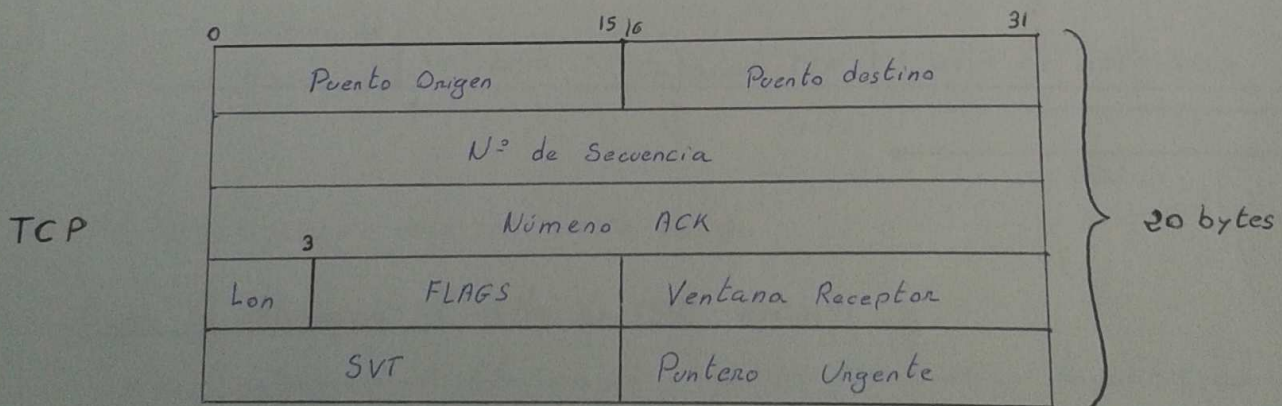 0 15 16 31
Puerto Origen Puerto destino
Nº de Secuencia
TCP Número ACK 20 bytes
3
Lon FLAGS Ventana Receptor
SVT Puntero Urgente